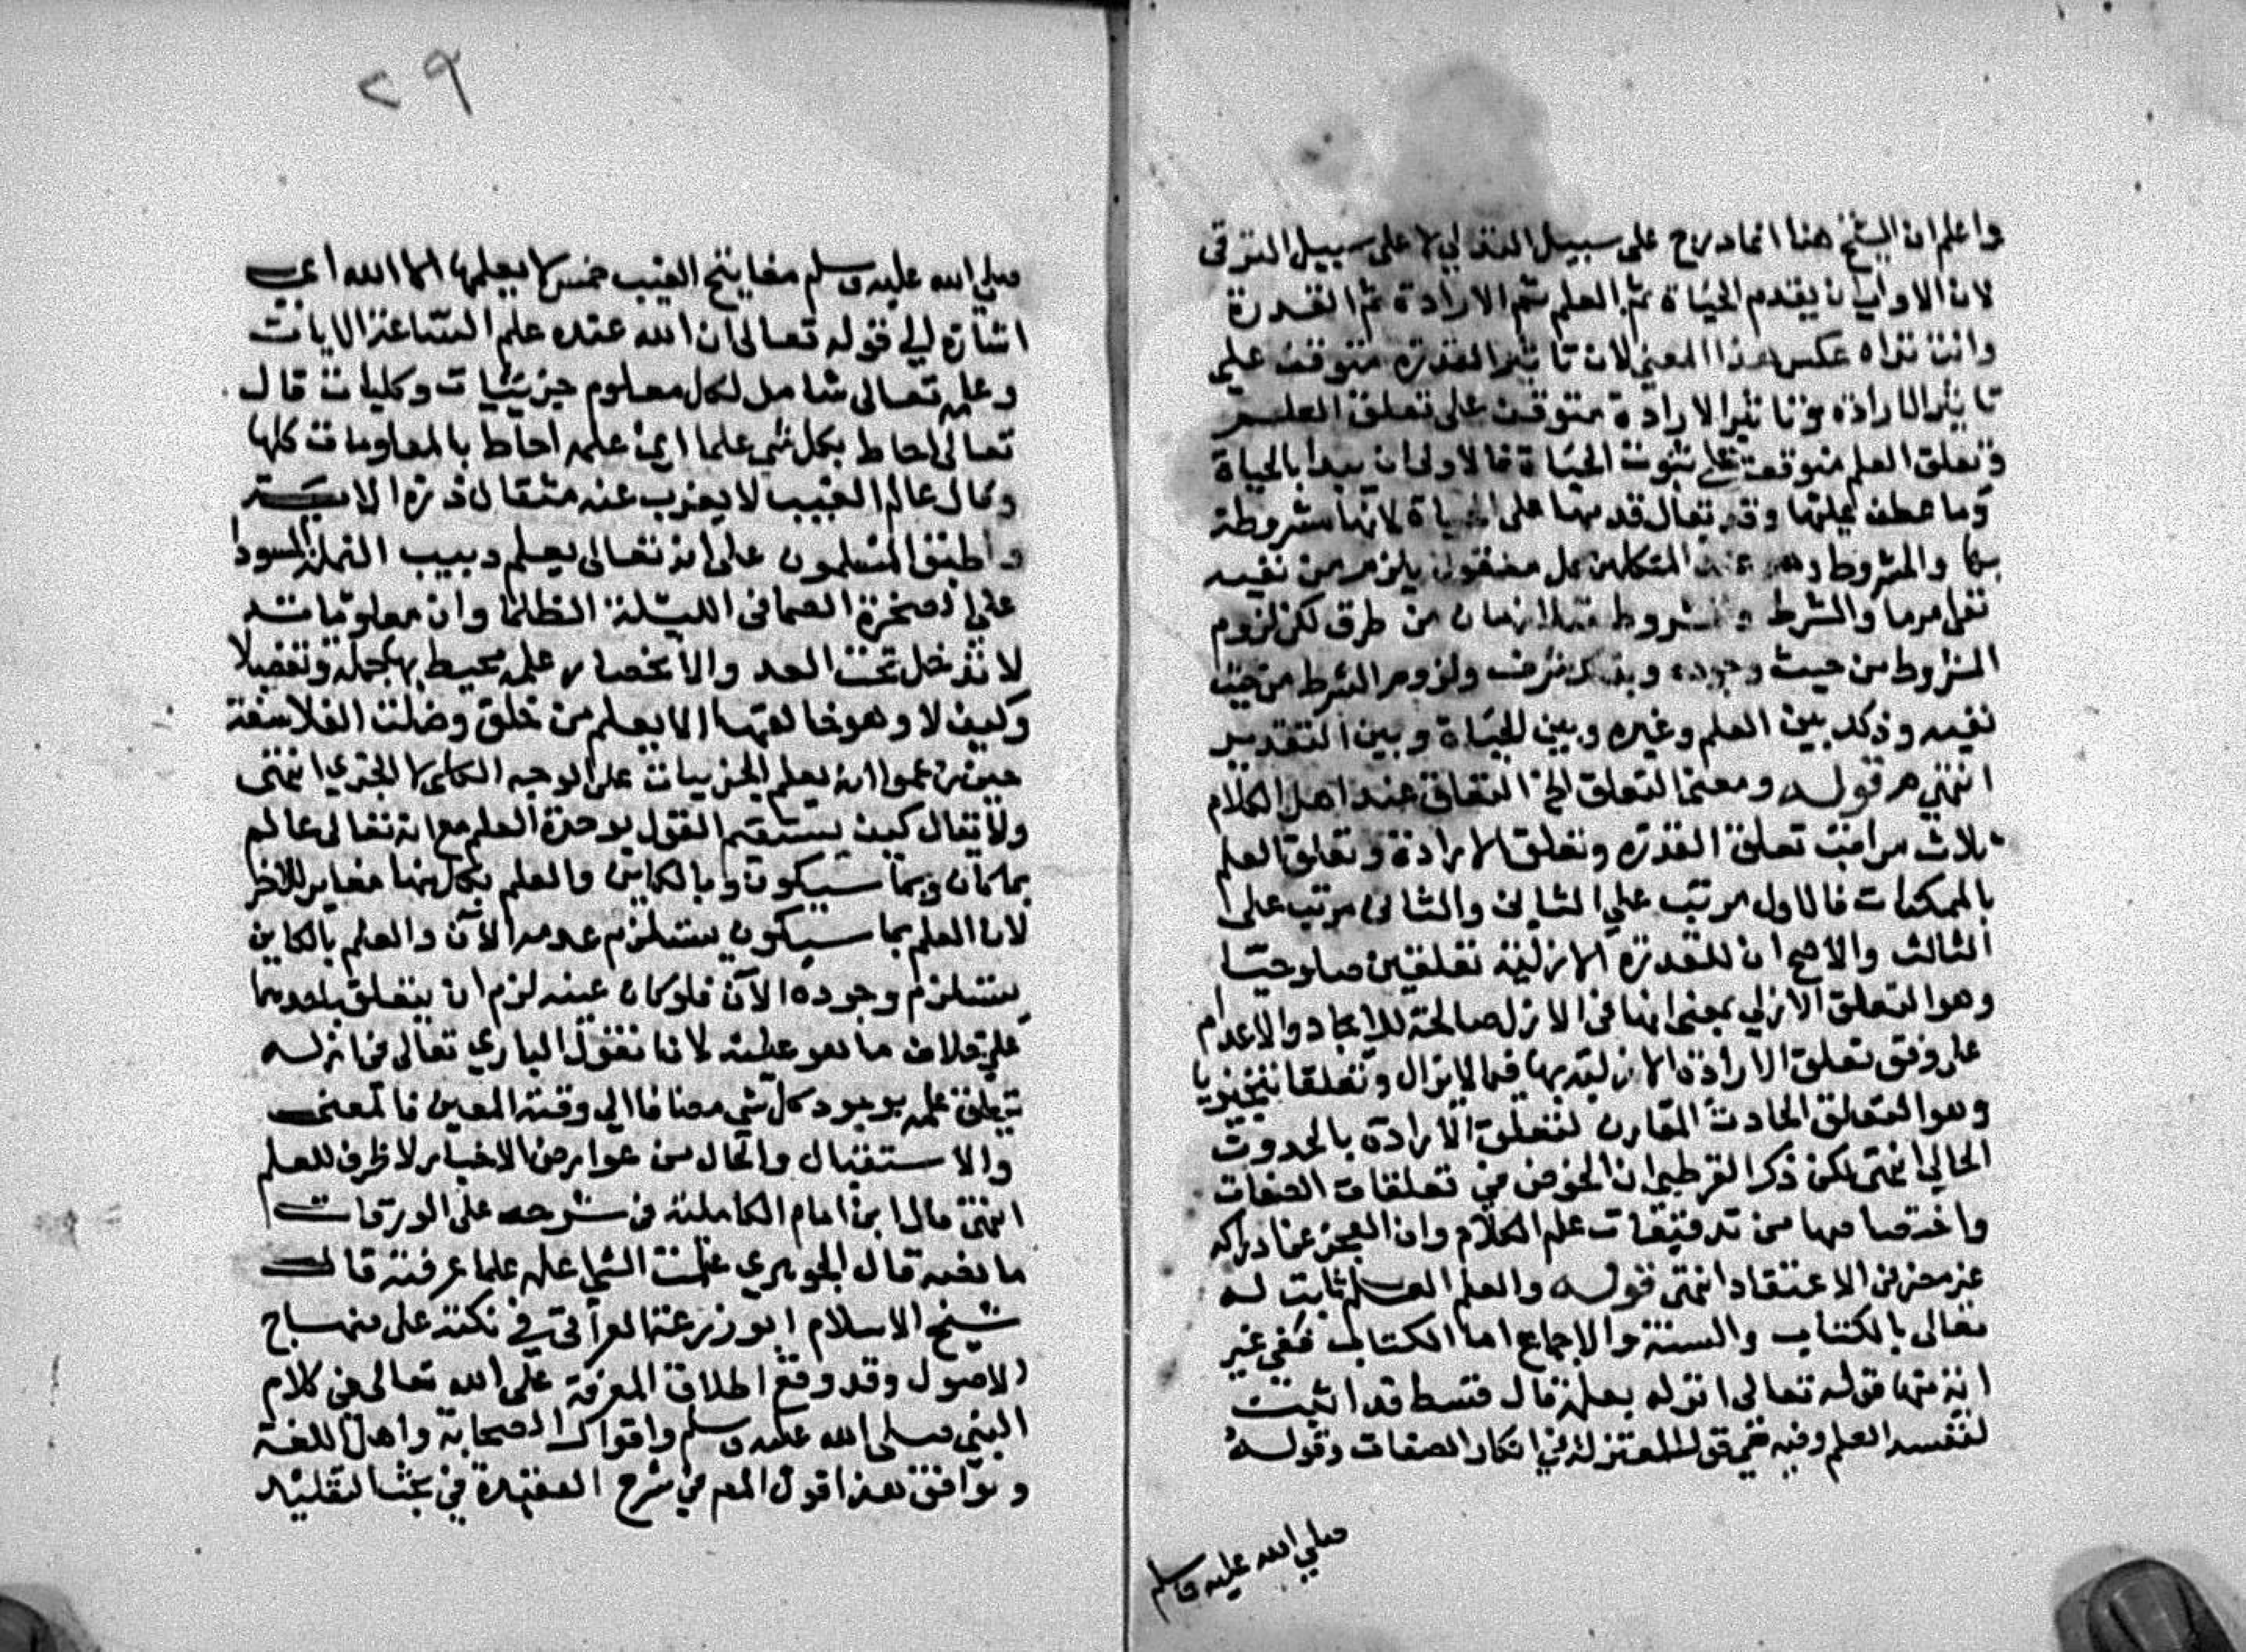 واعلم ان الشيخ هنا انما درج على سبيل التدلي لا على سبيل الترقي
لان الاولى ان يقدم الحياة ثم العلم ثم الارادة ثم القدرة
وانت تراه عكس هذا المعنى لان تاثير القدرة متوقف على
تاثير الارادة وتاثير الارادة متوقف على تعلق العلم
وتعلق العلم متوقف على ثبوت الحياة فالاولى ان يبدا بالحياة
وما عطف عليها وقد يقال قدمها على الحياة لانها مشروطة
بها والمشروط عند المتكلمين يلزم من نفيه
والشرط من طرق لكن لزوم
المشروط من حيث وجوده ولزوم الشرط من حيث
نفيه وذلك بين العلم وغيره وبين الحياة وبين التقدير
انتهى قوله ومعنى التعلق الخ التعلق عند اهل الكلام
ثلاث مراتب تعلق القدرة وتعلق الارادة وتعلق العلم
بالممكنات فالاول مرتب على الثاني والثاني مرتب على
الثالث والاصح ان للقدرة الازلية تعلقين صلوحيا
وهو التعلق الازلي بمعنى انها في الازل صالحة للايجاد والاعدام
على وفق تعلق الارادة الازلية بها فيما لا يزال وتعلقا تنجيزيا
وهو التعلق الحادث المقارن لتعلق الارادة بالحدوث
الحالي انتهى لكن ذكر القرطبي ان الخوض في تعلقات الصفات
واختصاصها من تدقيقات علم الكلام وان العجز عن ادراكه
غير مضر في الاعتقاد انتهى قوله والعلم العلم ثابت له
تعالى بالكتاب والسنة والاجماع اما الكتاب ففي غير
اية منها قوله تعالى انزله بعلمه قال قد اثبت
لنفسه العلم وفيه نفي قول المعتزلة في انكار الصفات وقوله
صلى الله عليه وسلم
٢٩
صلى الله عليه وسلم مفاتيح الغيب خمس لا يعلمها الا الله اي
اشارة الى قوله تعالى ان الله عنده علم الساعة الايات
وعلمه تعالى شامل لكل معلوم جزئيات وكليات قال
تعالى احاط بكل شي علما اي علمه احاط بالمعلومات كلها
وقال عالم الغيب لا يعزب عنه مثقال ذرة الاية
واطبق المسلمون على انه تعالى يعلم دبيب النملة السودا
على الصخرة الصما في الليلة الظلما وان معلوماته
لا تدخل تحت العد والانحصار وعلمه محيط بها جملة وتفصيلا
وكيف لا وهو خالقها الا يعلم من خلق وضلت الفلاسفة
حين زعموا انه يعلم الجزييات على الوجه الكلي لا الجزي انتهى
ولا يقال كيف يستقيم القول بوحدة العلم مع انه تعالى عالم
بما كان وبما سيكون وبالكاين والعلم بكل منها مغاير للاخر
لان العلم بما سيكون يستلزم عدمه الآن والعلم بالكاين
يستلزم وجوده الآن فلو كان عينه لزم ان يتعلق باحدهما
على خلاف ما هو عليه لانا نقول الباري تعالى في ازله
تعلق علمه بوجود كل شي مضافا الى وقته المعين فالمضي
والاستقبال والحال من عوارض الاخبار لا ظرف للعلم
انتهى قال ابن امام الكاملية في شرحه على الورقات
ما نصه قال الجوهري علمت الشي اعلمه علما عرفته قال
شيخ الاسلام ابو زرعة العراقي في نكته على منهاج
الاصول وقد وقع اطلاق المعرفة على الله تعالى في كلام
النبي صلى الله عليه وسلم واقوال الصحابة واهل اللغة
ويوافق هذا قول المص في شرح العقيدة في بحث التقليد